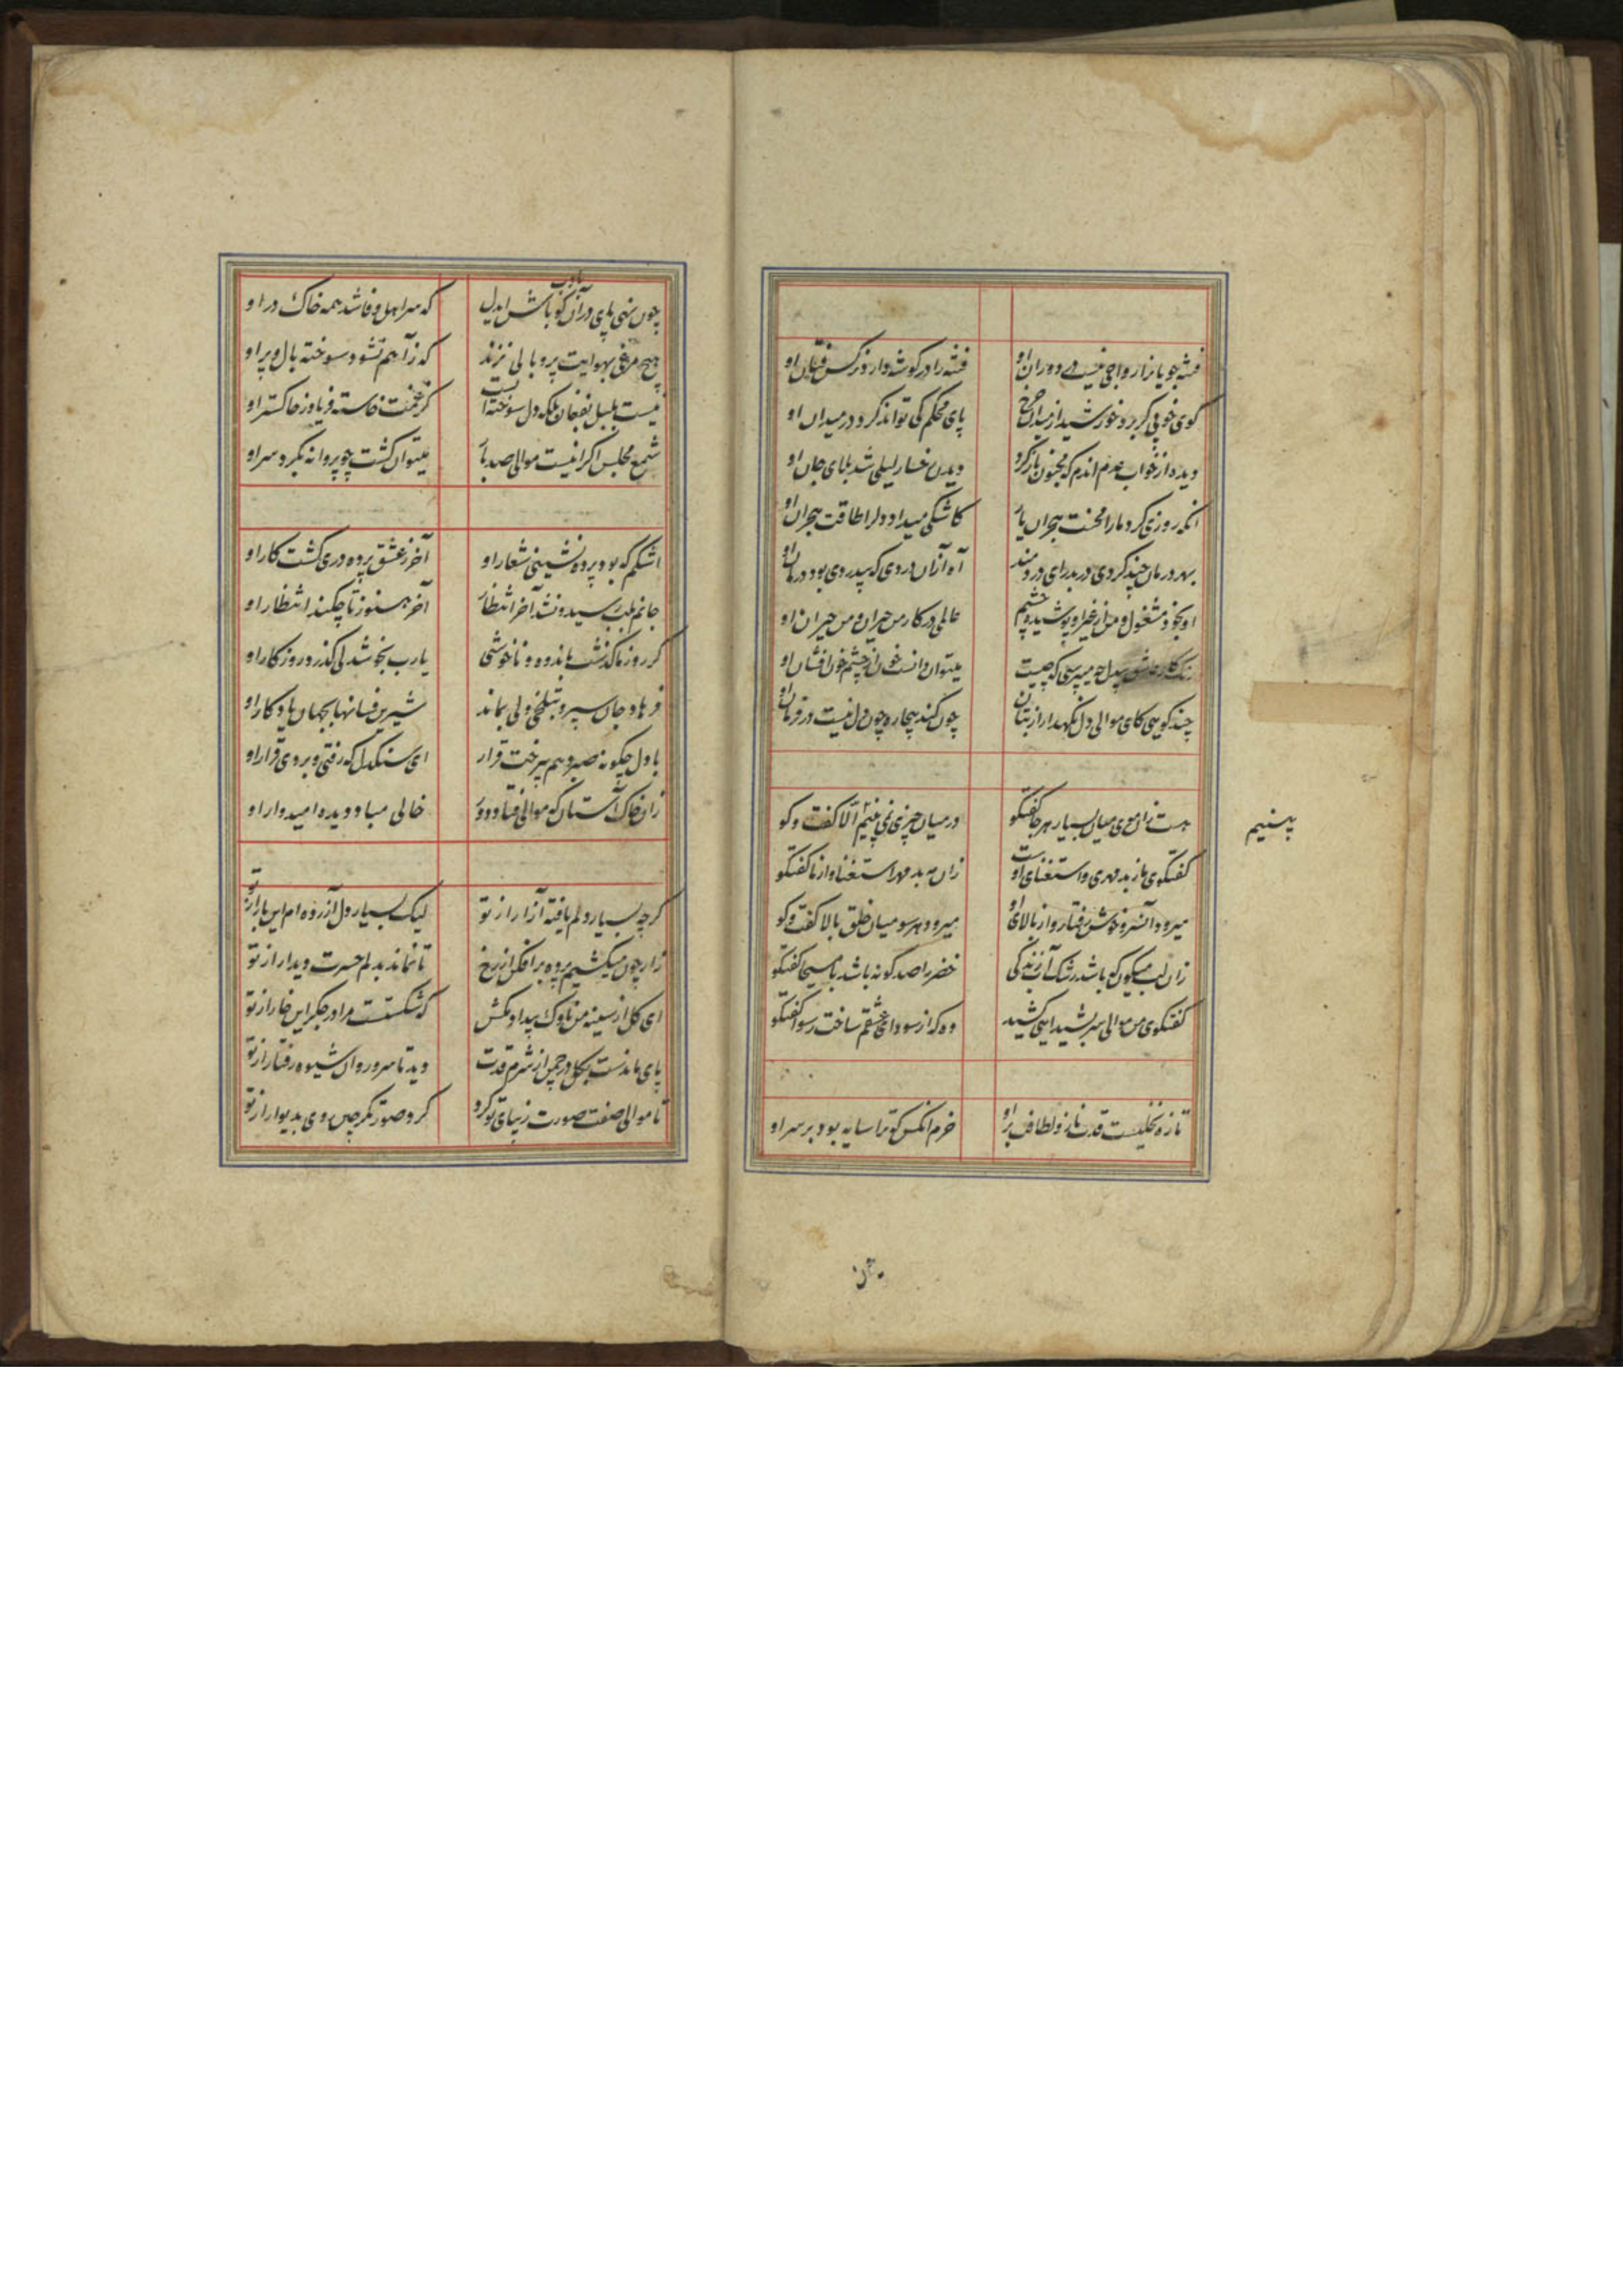 فتنه جویانرا رواجی نیست در دوران او
فتنه را در گوشه دارد نرکس فتان او
کوی خوبی کر برد خورشید از میدان چرخ
پای محکم کی تواند کرد در میدان او
دیده از خواب عدم اندم که مجنون باز کرد
دیدن رخسار لیلی شد بلای جان او
انکه روزی کرد ما را محنت هجران یار
کاشکی میداد دل را طاقت هجران او
بهر درمان چند کردی در بدر ای دردمند
آه از آن دردی که بیدردی بود درمان او
او بخود مشغول و من از غیر او پوشیده چشم
عالمی در کار من حیران و من حیران او
عاشق بیدل چو میپرسی که چیست
میتوان دانست خون از چشم خون افشان او
چند کویی کای موالی دل نکهدار از بتان
چون کند بیچاره چون دل نیست در فرمان او
هست زان موی میان بسیار هر جا کفتکو
در میان چیزی نمی بینم الا کفت و کو
بینیم
کفتکوی ما ز بد مهری و استغنای اوست
زان مه بد مهر استغنا و از ما کفتکو
میرود آنسرو خوش رفتار و از بالای او
میرود هر سو میان خلق بالا کفت و کو
زان لب میکون که باشد رشک آب زندکی
خضر را صد کونه باشد با مسیحا کفتکو
کفتکوی من موالی سر بشیدایی کشید
وه که از سودای عشقم ساخت رسوا کفتکو
تازه نخلیست قدت ناز و لطافت بر او
خرم انکس که ترا سایه بود بر سر او
چون نهی پای در آن کو باش ایدل
بادب
که سر اهل وفا شد همه خاک در او
هیچ مرغی بهوایت پر و بالی نزند
که ز آهم نشود سوخته بال و پر او
نیست بلبل بفغان بلکه دل سوخته ایست
کز غمت خاسته فریاد ز خاکستر او
شمع مجلس اکر اینست موالی صد بار
میتوان کشت چو پروانه بکرد سر او
اشکم که بود پرده نشینی شعار او
آخر ز عشق پرده دری کشت کار او
جانم بلب رسید و نشد آخر انتظار
آخر هنوز تا چکند انتظار او
کر روز ما کذشت باندوه و ناخوشی
یارب بخوشدلی کذرد روزکار او
فرهاد جان سپرد بتلخی ولی بماند
شیرین فسانها بجهان یادکار او
با دل چکونه صبر دهم بیرخت قرار
ای سنکدل که رفتی و بردی قرار او
زان خاک آستان که موالی فتاد دور
خالی مباد دیده امیدوار او
کرچه بسیار دلم یافته آزار از تو
لیک بسیار دل آزرده ام این بار از تو
زار چون میکشیم پرده برافکن از رخ
تا نماند بدلم حسرت دیدار از تو
ای کل از سینه من ناوک بیداد مکش
که شکستست مرا در جکر این خار از تو
پای ماندست بکل در چمن از شرم قدت
دید تا سرو روان شیوه رفتار از تو
تا موالی صفت صورت زیبای تو کرد
کرد صورتکر چین روی بدیوار از تو